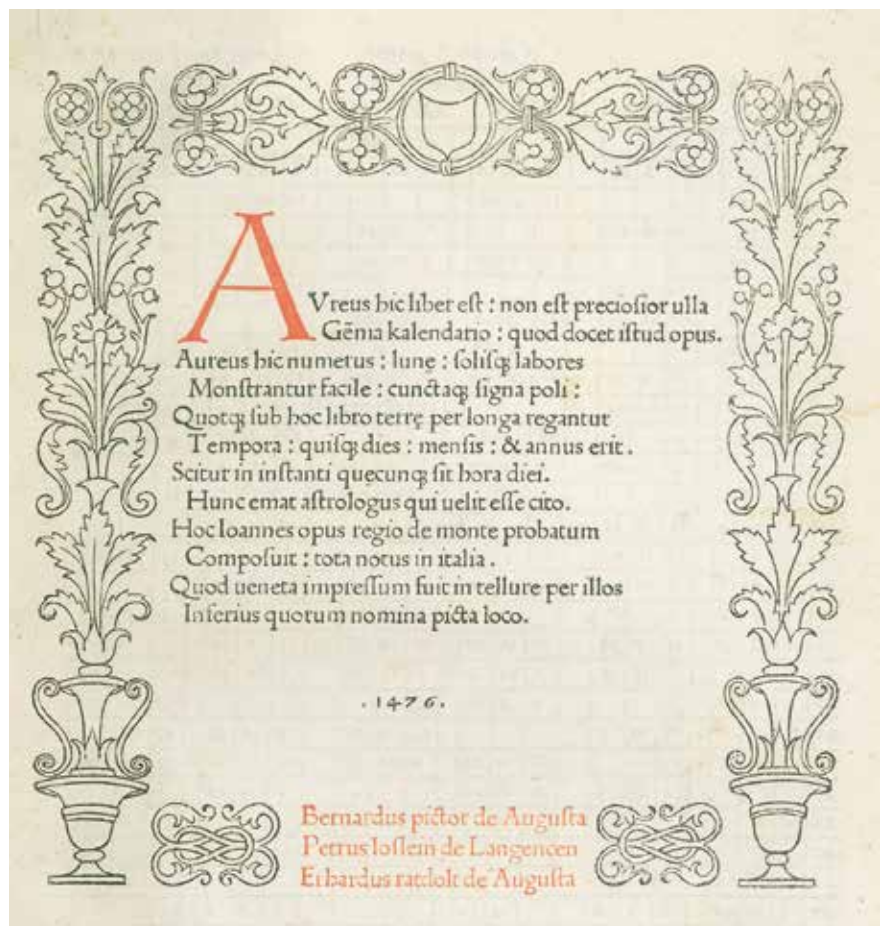 AVreus hic liber est : non est preciosior ulla
Gēma kalendario : quod docet istud opus.
Aureus hic numerus : lunę : solisqꝫ labores
Monstrantur facile : cunctaqꝫ signa poli :
Quotqꝫ sub hoc libro terrę per longa regantur
Tempora : quisqꝫ dies : mensis : & annus erit .
Scitur in instanti quecunqꝫ sit hora diei.
Hunc emat astrologus qui uelit esse cito.
Hoc Ioannes opus regio de monte probatum
Composuit : tota notus in italia .
Quod ueneta impressum fuit in tellure per illos
Inferius quorum nomina picta loco.
. 1476 .
Bernardus pictor de Augusta
Petrus loslein de Langencen
Erhardus ratdolt de Augusta